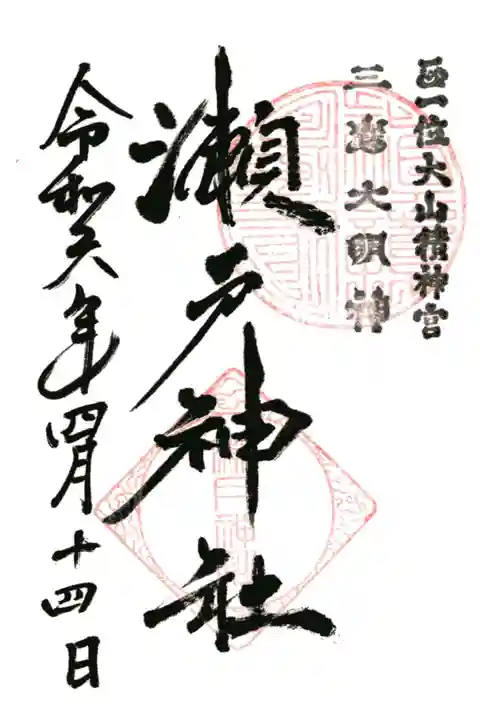 正一位大山積神宮
三島大明神
瀬戸神社
令和六年四月十四日